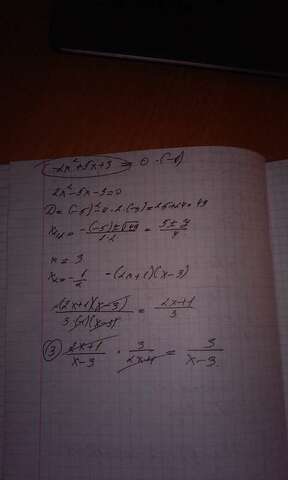 -2x²+5x+3 = 0 ·(-1)
2x²-5x-3=0
D=(-5)²-4·2·(-3)=25+24=49
x₁,₂= -(-5)±√49 / 2·2 = 5±7 / 4
x = 3
x₂=-1/2 -(2x+1)(x-3)
(2x+1)(x-3) / 3·(-1)(x-3) = 2x+1 / 3
③ 2x+1 / x-3 · 3 / 2x+1 = 3 / x-3